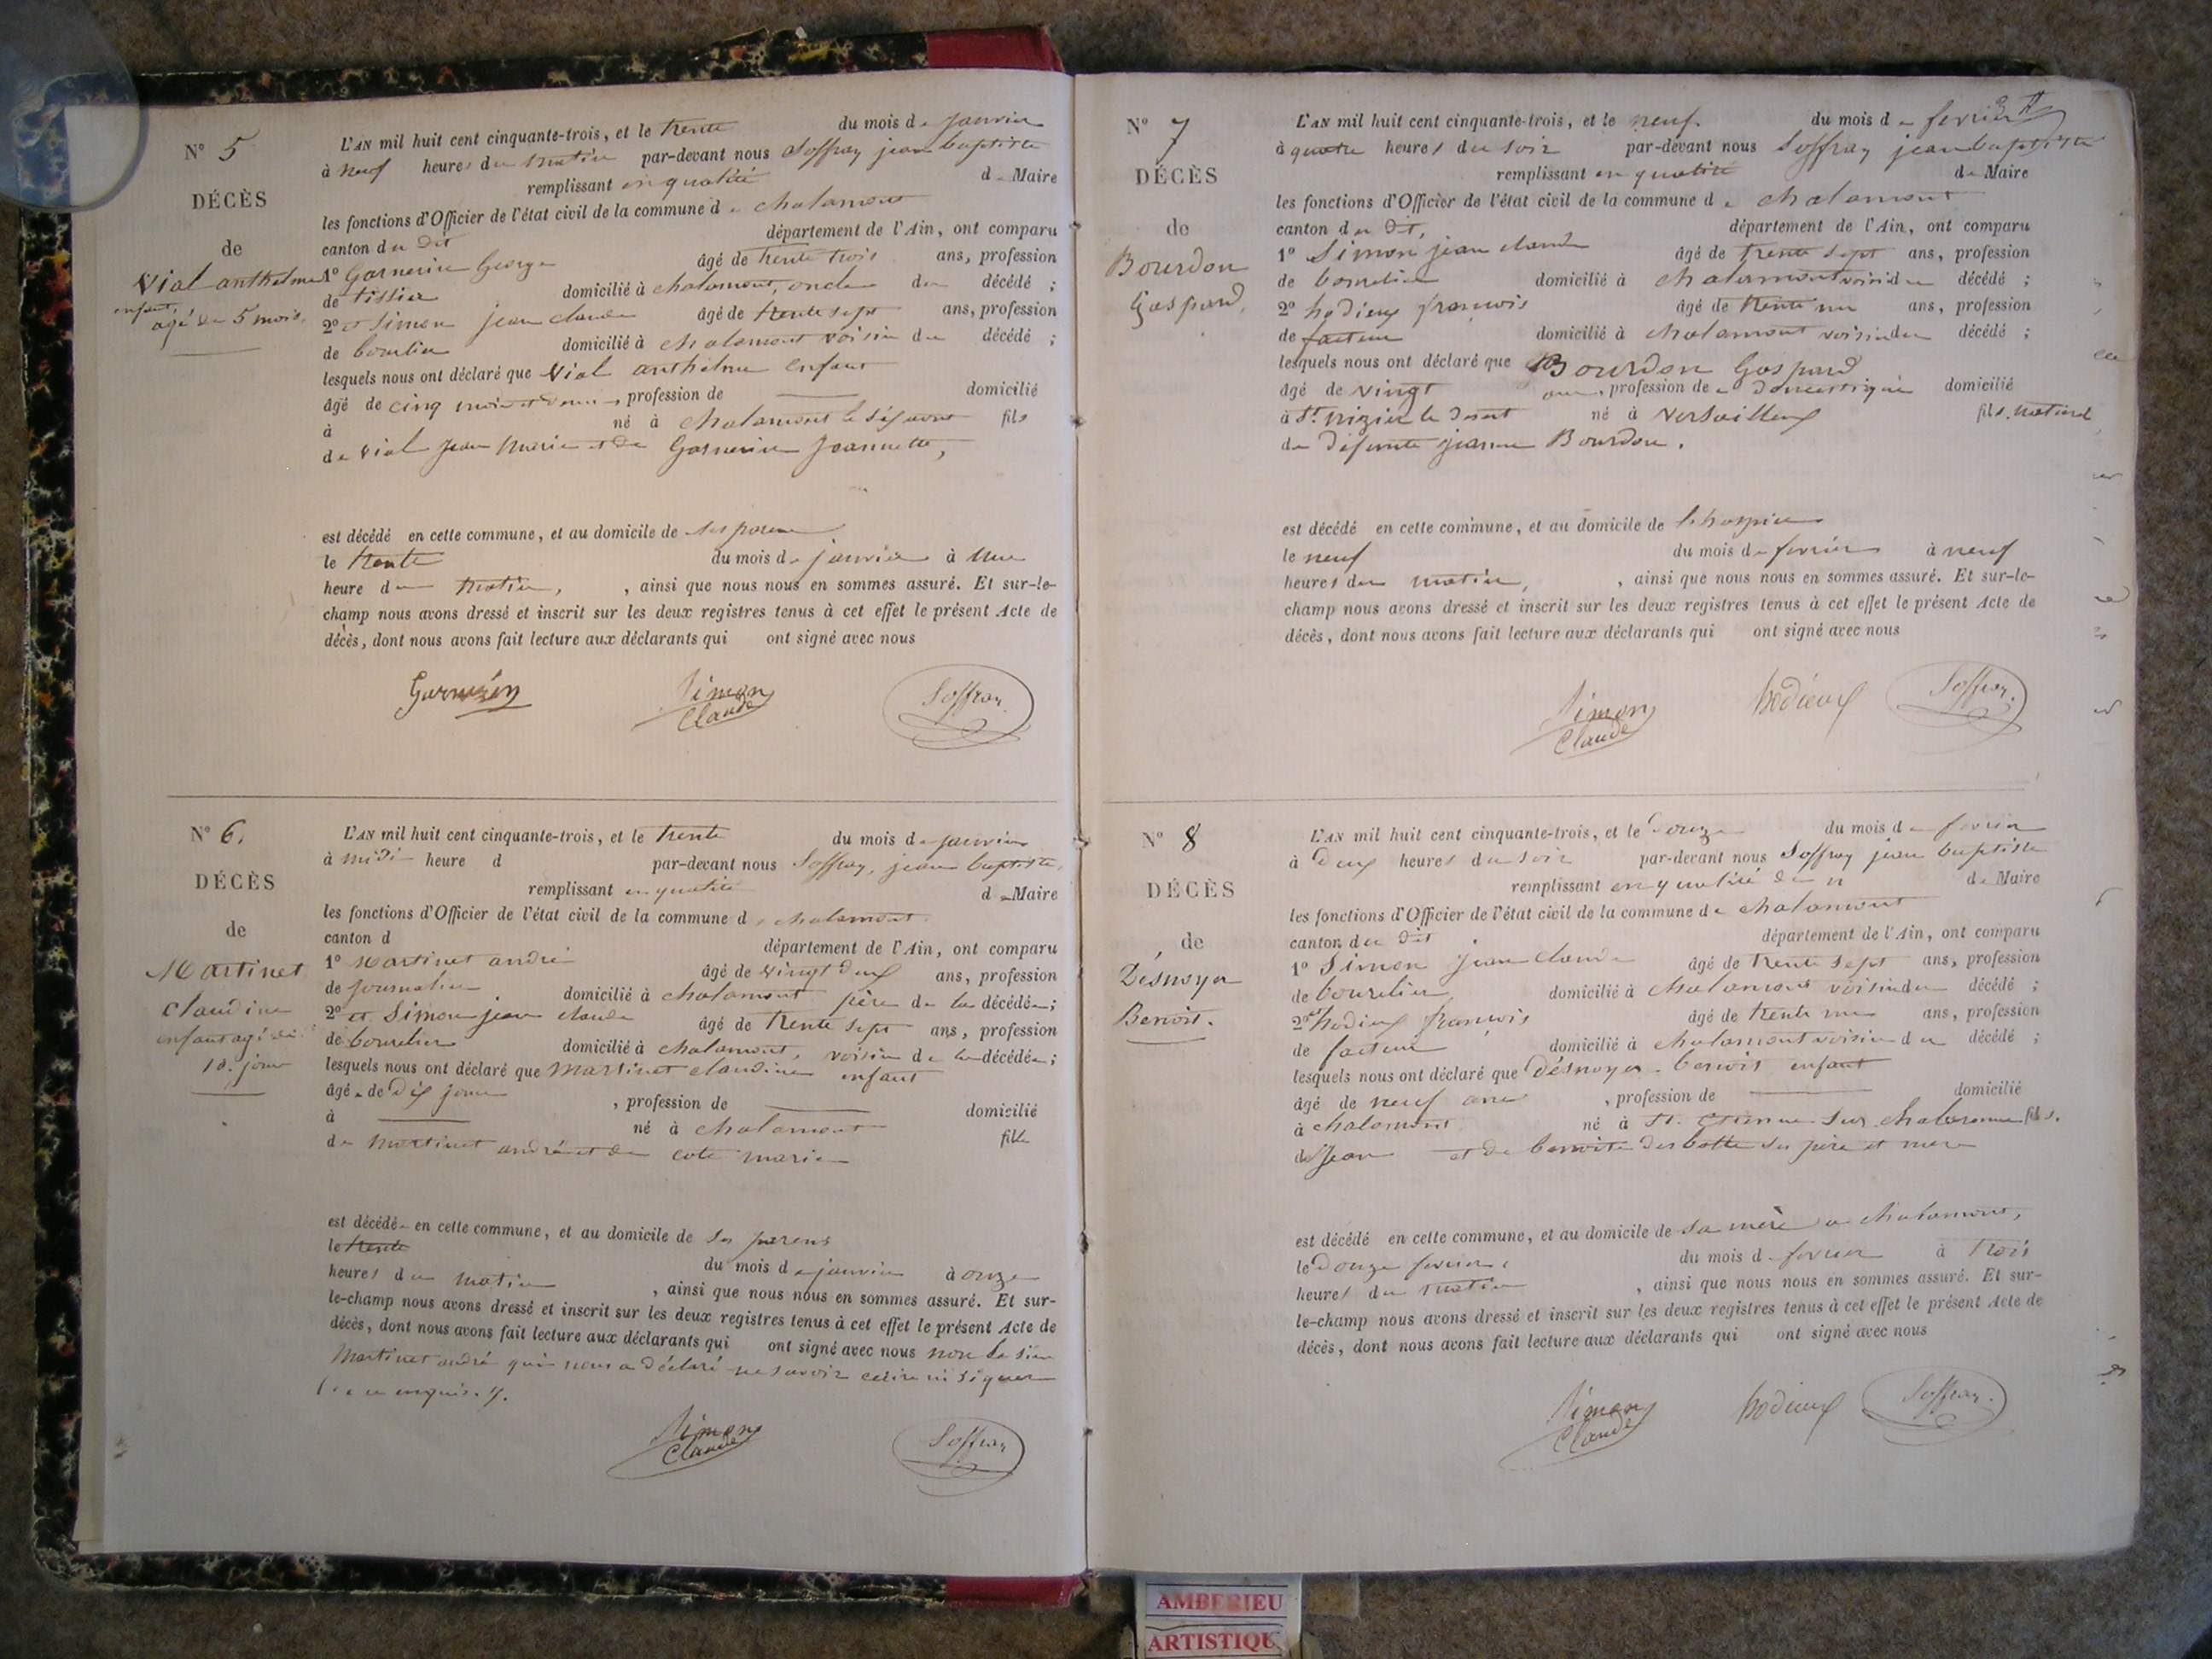 N° 5
DÉCÈS
de
Vial anthelme
enfant,
agé de 5 mois.
L'AN mil huit cent cinquante-trois, et le trente du mois de janvier
à neuf heures du matin par-devant nous Soffray jean baptiste
remplissant en qualité de Maire
les fonctions d'Officier de l'état civil de la commune de chalamont
canton du dit département de l'Ain, ont comparu
1° Garnerin George âgé de trente trois ans, profession
de tissier domicilié à chalamont, oncle du décédé ;
2° et Simon jean claude âgé de trente sept ans, profession
de bourlier domicilié à chalamont voisin du décédé ;
lesquels nous ont déclaré que Vial anthelme enfant
âgé de cinq mois et demi, profession de domicilié
à né à chalamont le fils
de Vial jean Marie et de Garnerin Jeannette,
est décédé en cette commune, et au domicile de ses parens
le trente du mois de janvier à une
heure du matin, , ainsi que nous nous en sommes assuré. Et sur-le-
champ nous avons dressé et inscrit sur les deux registres tenus à cet effet le présent Acte de
décès, dont nous avons fait lecture aux déclarants qui ont signé avec nous
Garnerin Simon Claude Soffray
N° 6.
DÉCÈS
de
Martinet
claudine
enfant agé de
10 jour
L'AN mil huit cent cinquante-trois, et le trente du mois de janvier
à midi heure d par-devant nous Soffray, jean baptiste,
remplissant en qualité de Maire
les fonctions d'Officier de l'état civil de la commune de chalamont
canton d département de l'Ain, ont comparu
1° Martinet andré âgé de vingt deux ans, profession
de journalier domicilié à chalamont père de la décédée ;
2° et Simon jean claude âgé de trente sept ans, profession
de bourelier domicilié à chalamont, voisin de la décédée ;
lesquels nous ont déclaré que Martinet claudine enfant
âgée de dix jours , profession de domicilié
à né à chalamont fille
de Martinet andré et de cote marie
est décédée en cette commune, et au domicile de ses parens
le trente du mois de janvier à onze
heures du matin , ainsi que nous nous en sommes assuré. Et sur-
le-champ nous avons dressé et inscrit sur les deux registres tenus à cet effet le présent Acte de
décès, dont nous avons fait lecture aux déclarants qui ont signé avec nous non le sieur
Martinet andré qui nous a déclaré ne savoir écrire ni signer
de ce enquis.
Simon Claude Soffray
N° 7
DÉCÈS
de
Bourdon
Gaspard.
L'AN mil huit cent cinquante-trois, et le neuf du mois de fevrier
à quatre heures du soir par-devant nous Soffray jean baptiste
remplissant en qualité de Maire
les fonctions d'Officier de l'état civil de la commune de chalamont
canton du dit, département de l'Ain, ont comparu
1° Simon jean claude âgé de trente sept ans, profession
de bourelier domicilié à chalamont voisin du décédé ;
2° hodieux francois âgé de trente un ans, profession
de facteur domicilié à chalamont voisin du décédé ;
lesquels nous ont déclaré que Bourdon Gaspard
âgé de vingt ans, profession de domestique domicilié
à St. nizier le desert né à Versailleux fils naturel
de défunte jeanne Bourdon.
est décédé en cette commune, et au domicile de l'hospice
le neuf du mois de fevrier à neuf
heures du matin, , ainsi que nous nous en sommes assuré. Et sur-le-
champ nous avons dressé et inscrit sur les deux registres tenus à cet effet le présent Acte de
décès, dont nous avons fait lecture aux déclarants qui ont signé avec nous
Simon Claude hodieux Soffray
N° 8
DÉCÈS
de
Désnoyer
Benoit.
L'AN mil huit cent cinquante-trois, et le douze du mois de fevrier
à deux heures du soir par-devant nous Soffray jean baptiste
remplissant en qualité de Maire
les fonctions d'Officier de l'état civil de la commune de chalamont
canton du dit département de l'Ain, ont comparu
1° Simon jean claude âgé de trente sept ans, profession
de bourelier, domicilié à chalamont voisin du décédé ;
2° hodieux francois âgé de trente un ans, profession
de facteur domicilié à chalamont voisin du décédé ;
lesquels nous ont déclaré que désnoyer benoit enfant
âgé de neuf ans , profession de domicilié
à chalamont né à St. Etienne sur chalaronne fils.
de Jean et de benoite ses père et mere
est décédé en cette commune, et au domicile de sa mère a chalamont,
le douze fevrier du mois de fevrier à trois
heures du matin , ainsi que nous nous en sommes assuré. Et sur-
le-champ nous avons dressé et inscrit sur les deux registres tenus à cet effet le présent Acte de
décès, dont nous avons fait lecture aux déclarants qui ont signé avec nous
Simon Claude hodieux Soffray
AMBERIEU
ARTISTIQUE